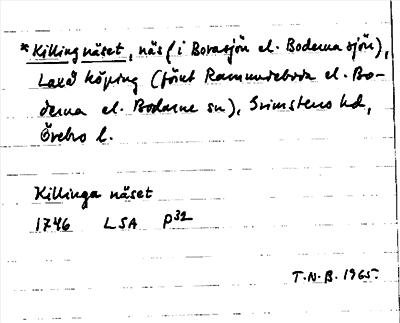 *Killingnäset, näs (i Borasjön el. Boderna sjön),
Laxå köping (förut Ramundeboda el. Bo-
derna el. Bodarne sn), Grimstens hd,
Örebro l.
Killinga näset
1746 LSA P32
T.N.B. 1965